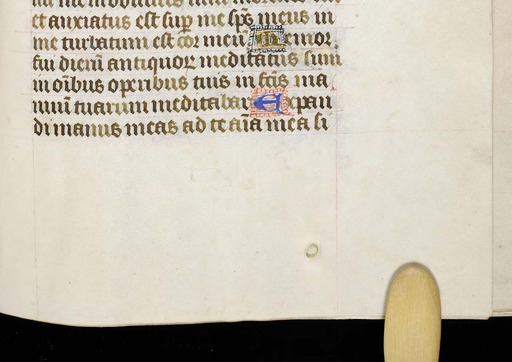 et anxiatus est sup me sps meus in
me turbatum est cor meu Memor
fui dierū antiquor meditatus sum
in oībus operibus tuis in fcīs ma
nuū tuarum meditabar Expan
di manus meas ad te aīa mea si